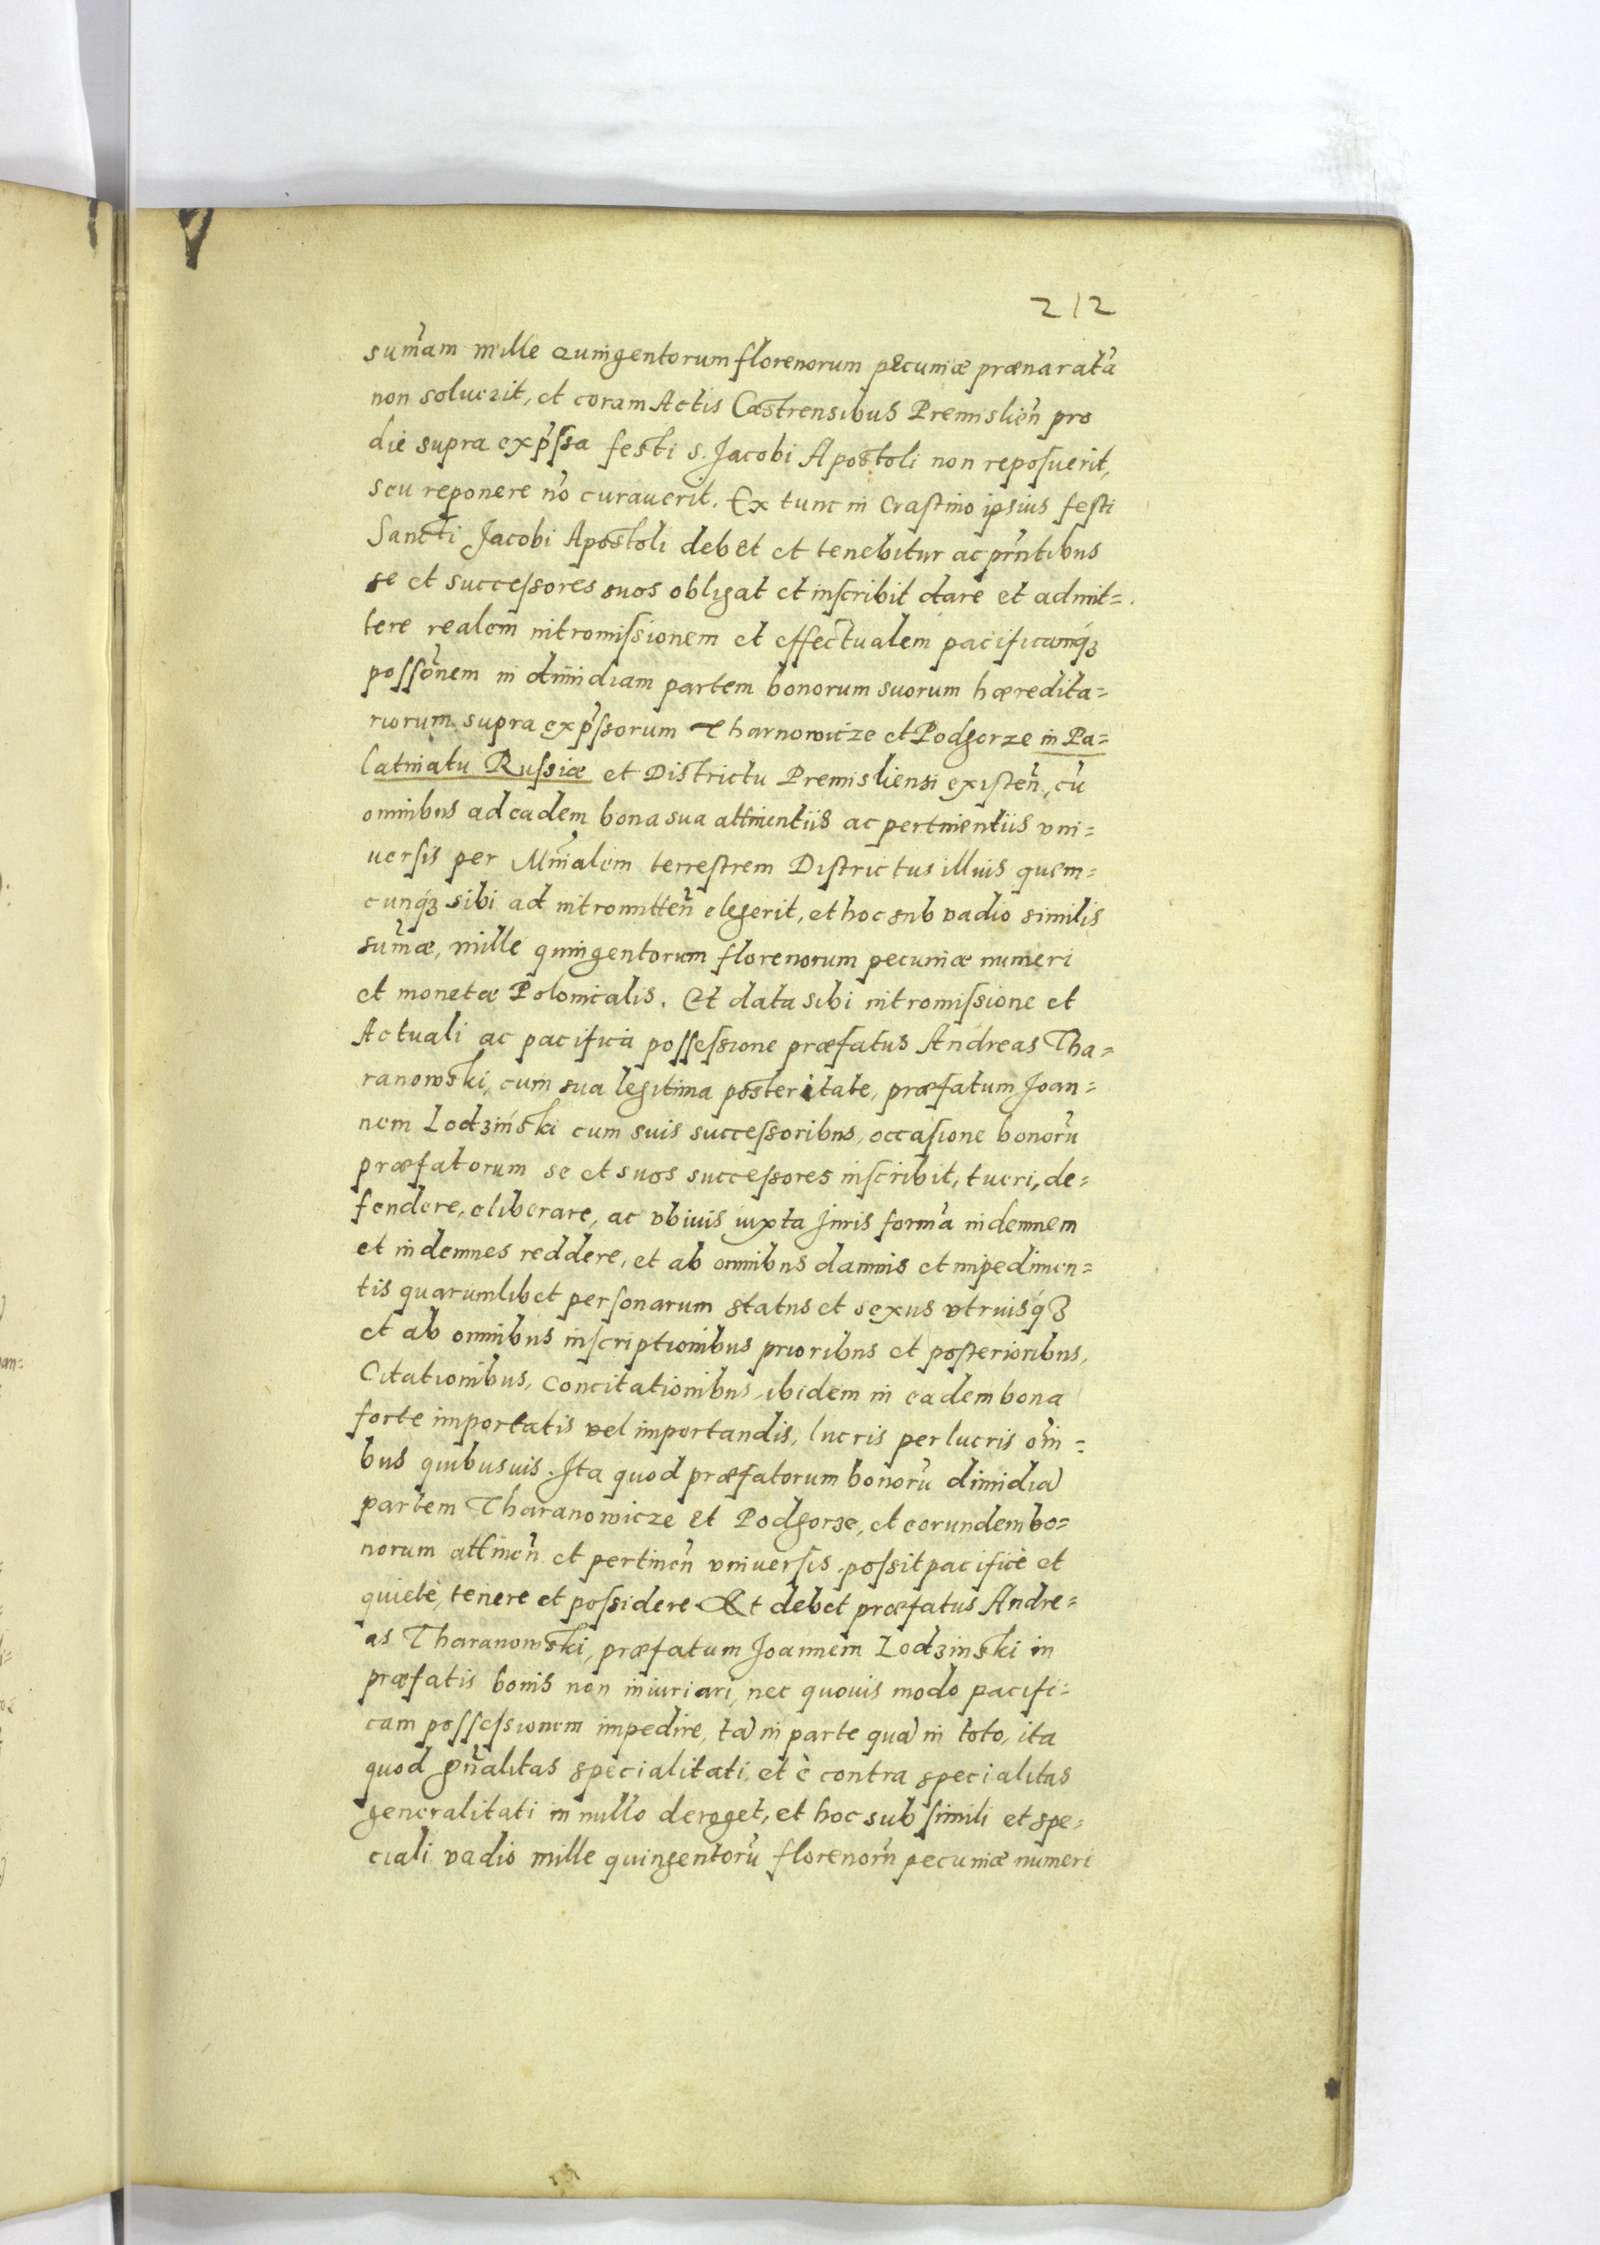 212
sum̃am mille Quingentorum florenorum pecuniæ prænarata᷉
non soluerit, et coram Actis Castrensibus Premislien᷉ pro
die supra exp᷉ssa festi s. Jacobi Apostoli non reposuerit,
seu reponere no᷉ curauerit. Ex tunc in Crastino ipsius festi
Sancti Jacobi Apostoli debet et tenebitur ac pr᷉ntibus
se et successores suos obligat et inscribit dare et admit=
tere realem intromissionem et effectualem pacificamq́ȝ
posso᷉nem in dimidiam partem bonorum suorum hæredita=
riorum supra exp᷉ssorum Tharnowicze et Podgorze in Pa=
latinatu Russiæ et Districtu Premisliensi existen᷉, cu᷉
omnibus ad eadem bona sua attinentiis ac pertinentiis vni=
uersis per Min᷉alem terrestrem Districtus illius quem=
cunq́ȝ sibi ad intromitten᷉ elegerit, et hoc sub vadio similis
sum᷉æ, mille quingentorum florenorum pecuniæ numeri
et monetæ Polonicalis. Et data sibi intromissione et
Actuali ac pacifica possessione præfatus Andreas Tha=
ranowski, cum sua legitima posteritate, præfatum Joan=
nem Lodziński cum suis successoribus, occasione bonoru᷉
præfatorum se et suos successores inscribit, tueri, de=
fendere, eliberare, ac vbiuis iuxta Juris forma᷉ indemnem
et indemnes reddere, et ab omnibus damnis et impedimen=
tis quarumlibet personarum status et sexus vtriusq́ȝ
et ab omnibus inscriptionibus prioribus et posterioribus,
Citationibus, Concitationibus, ibidem in eadem bona
forte importatis vel importandis, lucris perlucris om᷉i=
bus quibusuis. Ita quod præfatorum bonoru᷉ dimidia᷉
partem Tharanowicze et Podgorze, et eorundem bo=
norum attinen᷉ et pertinen᷉ vniuersis, possit pacificè et
quietè, tenere et possidere Et debet præfatus Andre=
as Tharanowski, præfatum Joannem Lodzinski in
præfatis bonis non iniuriari, nec quouis modo pacifi=
cam possessionem impedire, ta᷉ in parte qua᷉ in toto, ita
quod gn᷉alitas specialitati, et è contra specialitas
generalitati in nullo deroget, et hoc sub simili et spe=
ciali vadio mille quingentoru᷉ florenoru᷉ pecuniæ numeri